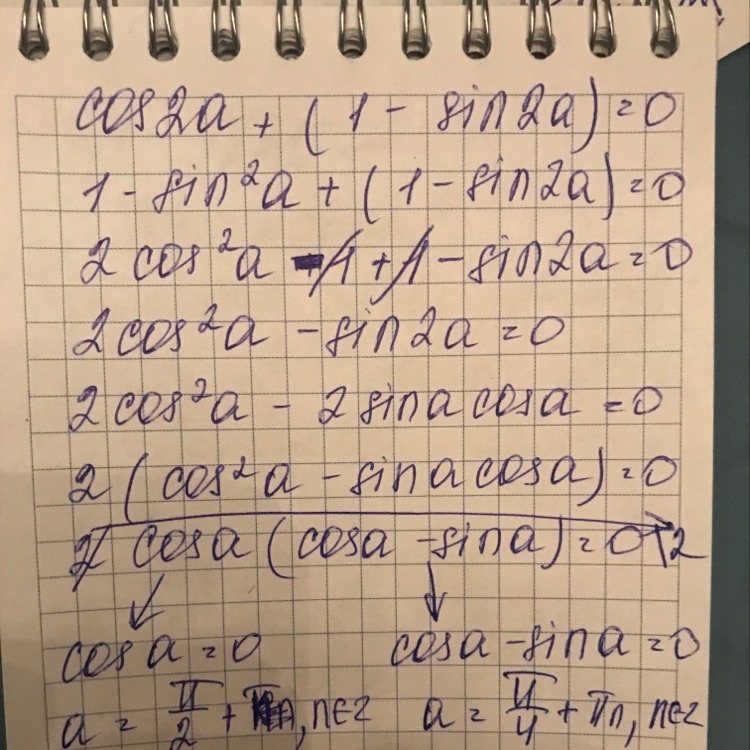 cos2a + (1 - sin2a) = 0
1 - sin²a + (1 - sin2a) = 0
2 cos²a - 1 + 1 - sin2a = 0
2cos²a - sin2a = 0
2cos²a - 2 sina cosa = 0
2 (cos²a - sina cosa) = 0
2 cosa (cosa - sina) = 0 | 2
cosa = 0 cosa - sina = 0
a = π/2 + πn, n∈z a = π/4 + πn, n∈z